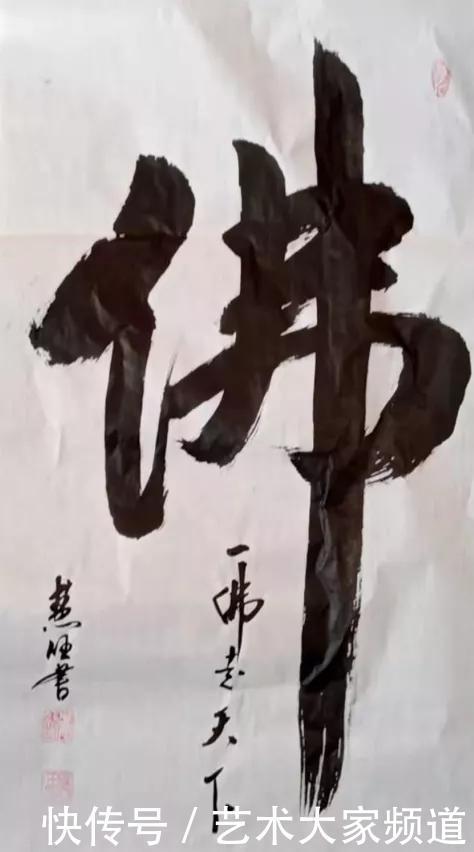 佛
一佛走天下
慧
书
快传号 / 艺术大家频道